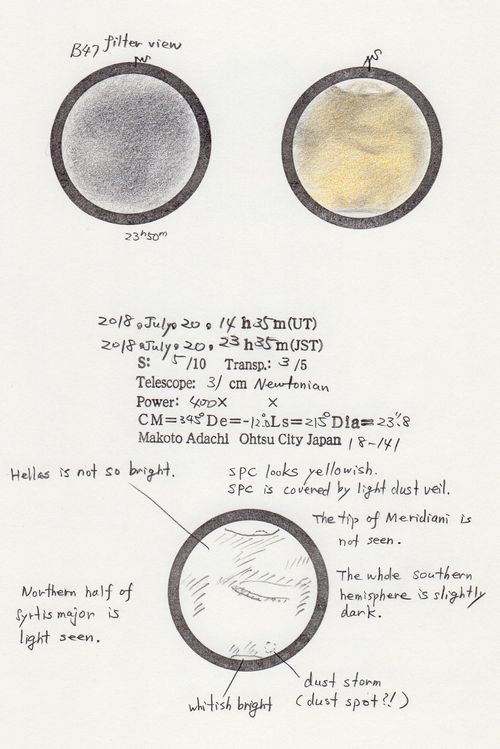 B47 filter view
S
S
23h50m
2018.July.20. 14h35m(UT)
2018.July.20. 23h35m(JST)
S: 5/10 Transp.: 3/5
Telescope: 31 cm Newtonian
Power: 400× ×
CM=345° De=-12.° Ls=215° Dia=23".8
Makoto Adachi Ohtsu City Japan 18-141
Hellas is not so bright.
SPC looks yellowish.
SPC is covered by light dust veil.
The tip of Meridiani is
not seen.
The whole southern
hemisphere is slightly
dark.
Northern half of
Syrtis major is
light seen.
dust storm
(dust spot?!)
whitish bright